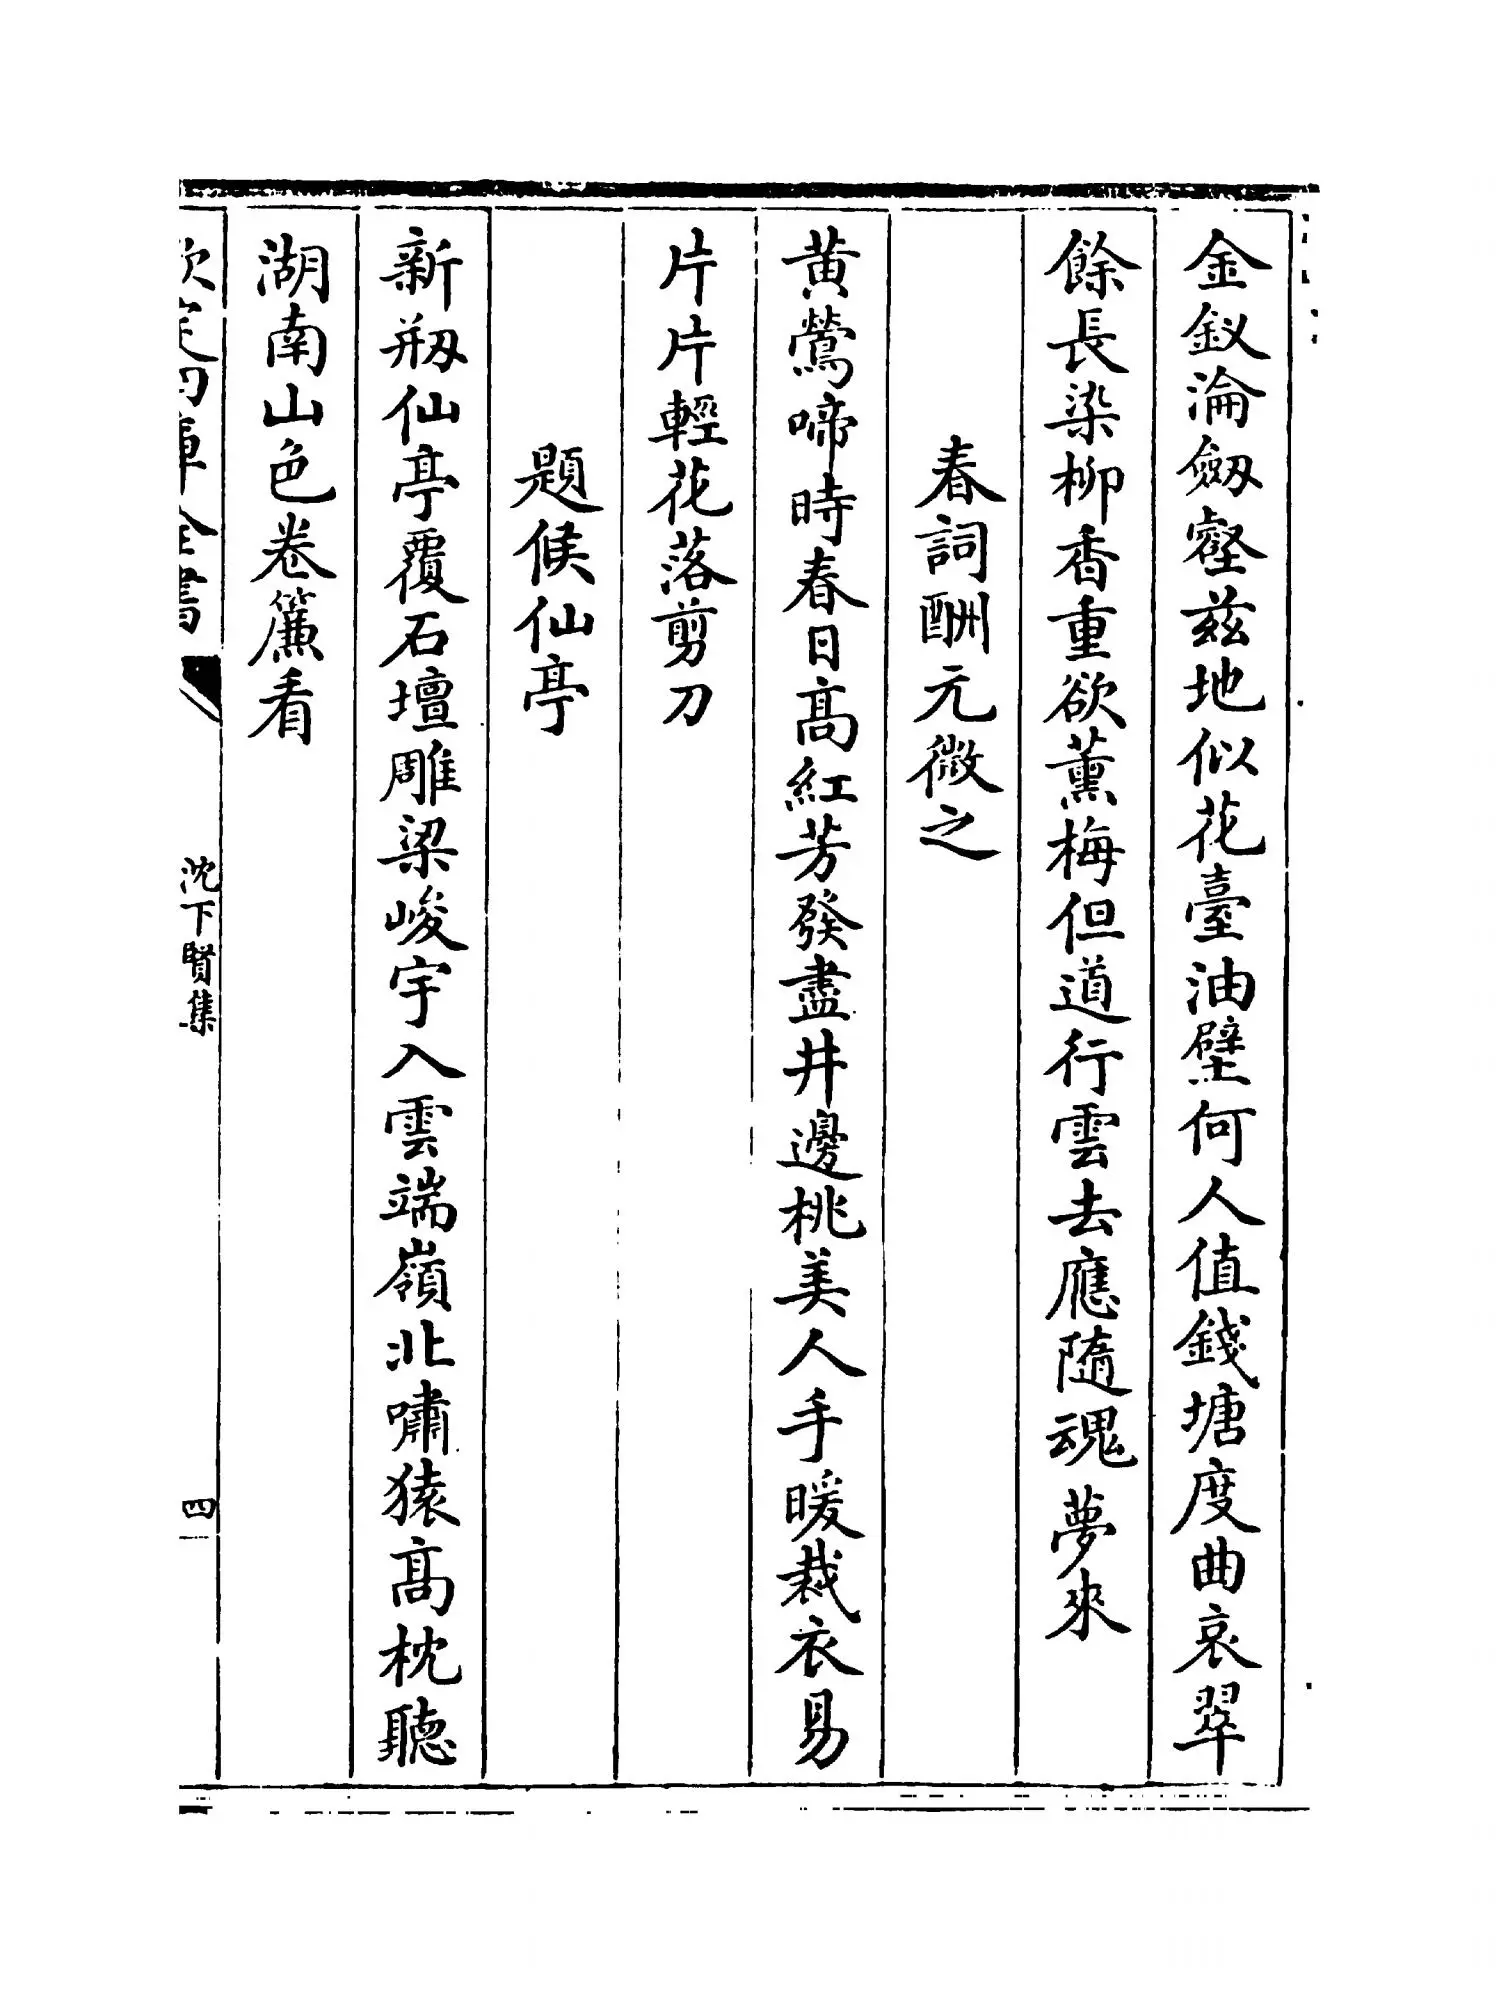 金釵淪劒壑茲地似花臺油壁何人值錢塘度曲哀翠
餘長染柳香重欲薰梅但道行雲去應隨魂夢來
春詞酬元微之
黄鶯啼時春日髙紅芳發盡井邊桃美人手暖裁衣易
片片輕花落剪刀
題候仙亭
新剏仙亭覆石壇雕梁峻宇入雲端嶺北嘯猿髙枕聽
湖南山色卷簾看
欽定四庫全書
沈下賢集
四